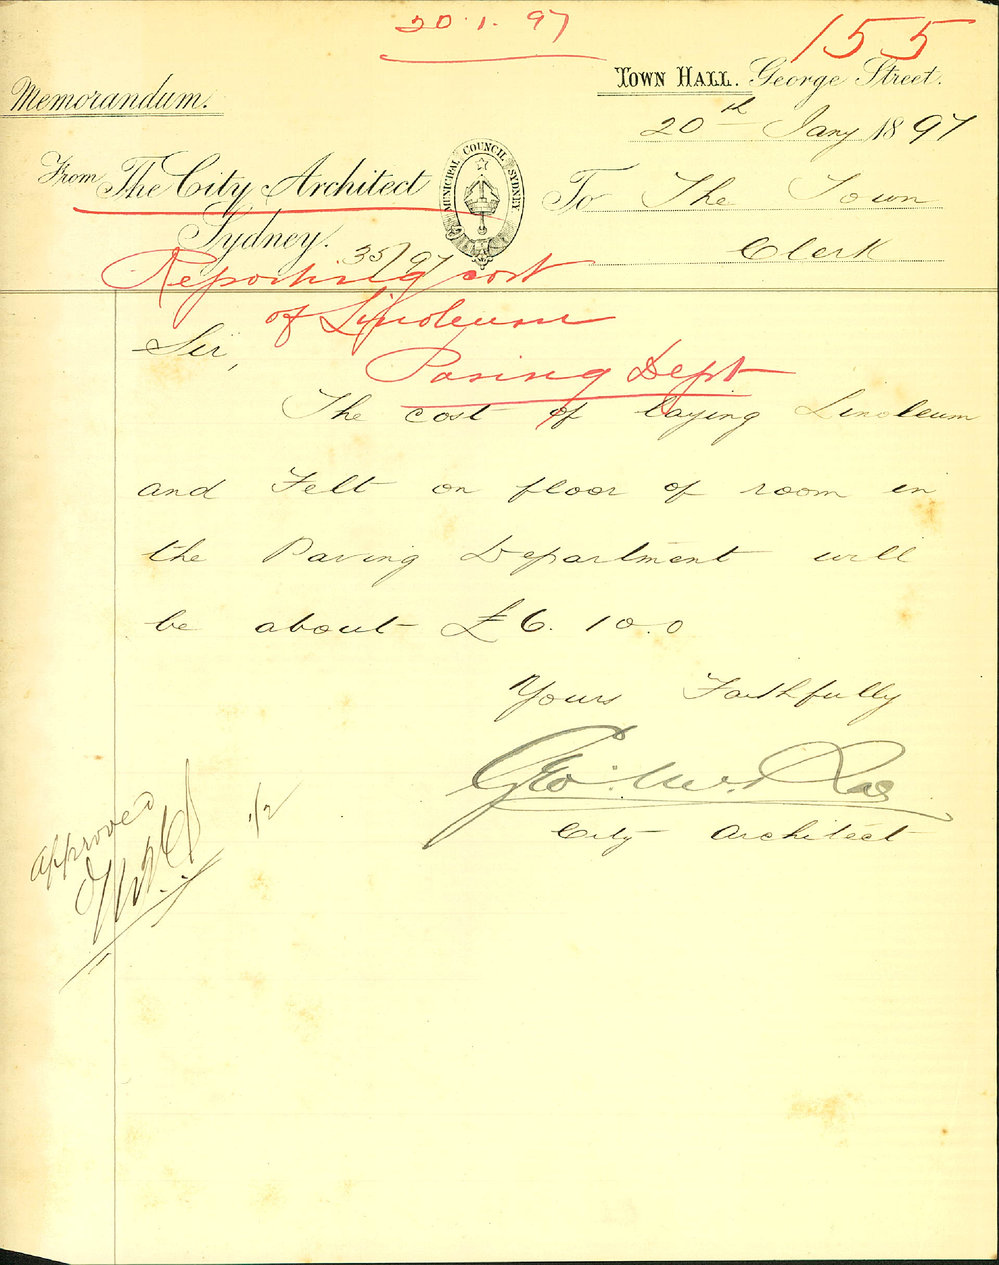 20.1.97
155
Town Hall. George Street.
Memorandum.
20th Jany 1897
From The City Architect
Sydney.
MUNICIPAL COUNCIL SYDNEY
To The Town
Clerk
35/97
Reporting cost
of Linoleum
Paving Dept
Sir,
The cost of laying Linoleum
and Felt on floor of room in
the Paving Department will
be about £6.10.0
Yours Faithfully
Geo. McRae
City Architect
Approved
1/2